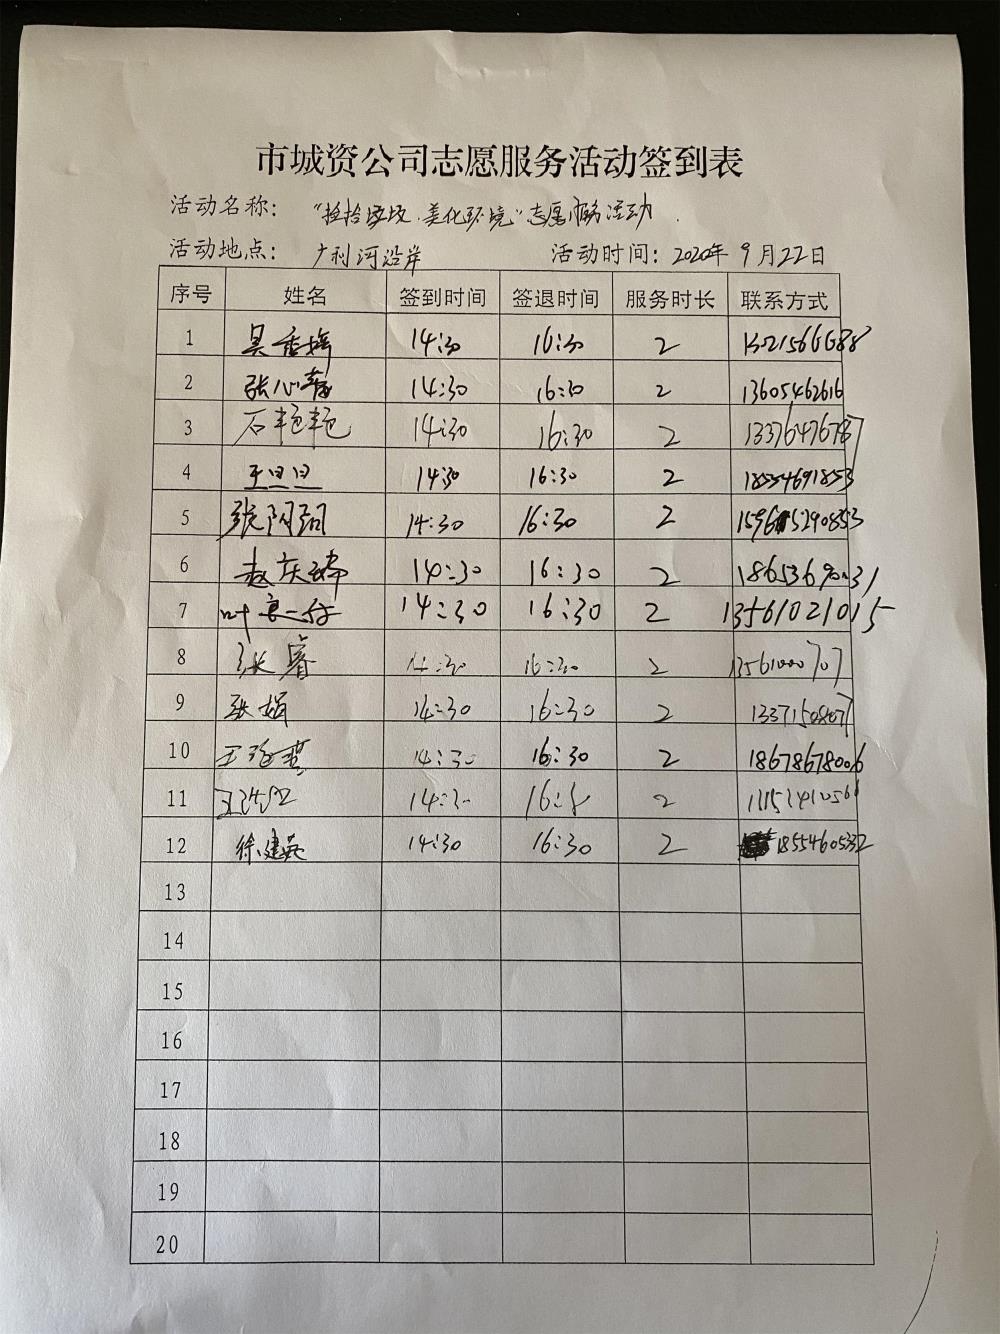 市城资公司志愿服务活动签到表
活动名称： “捡拾垃圾·美化环境”志愿服务活动
活动地点： 广利河沿岸 活动时间： 2020年 9月22日
序号 姓名 签到时间 签退时间 服务时长 联系方式
1 14:30 16:30 2 13021566688
2 张心 14:30 16:30 2 13605462616
3 石艳艳 14:30 16:30 2 13376476787
4 王旦旦 14:30 16:30 2 18554691853
5 张 14:30 16:30 2
6 赵庆 14:30 16:30 2
7 叶 14:30 16:30 2 13561021015
8 张睿 14:30 16:30 2 13561000707
9 张娟 14:30 16:30 2 13371508077
10 王 14:30 16:30 2 18678678006
11 14:30 2
12 徐建英 14:30 16:30 2 18554605332
13
14
15
16
17
18
19
20